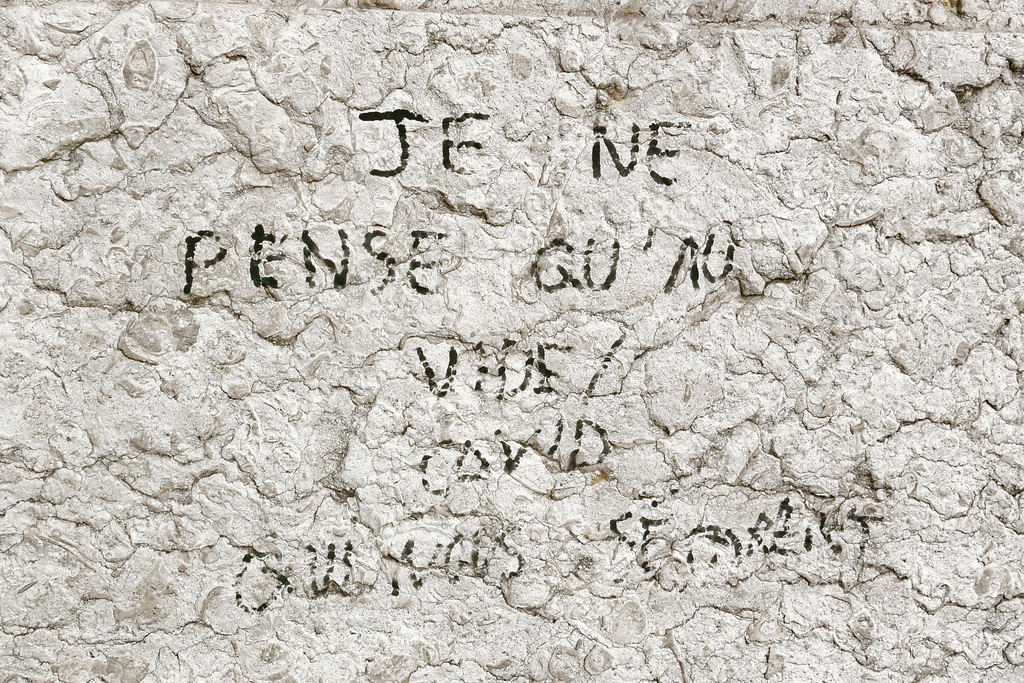 JE NE
PENSE QU'AU
VIDE/
COVID
QUI NOUS SÉPARENT